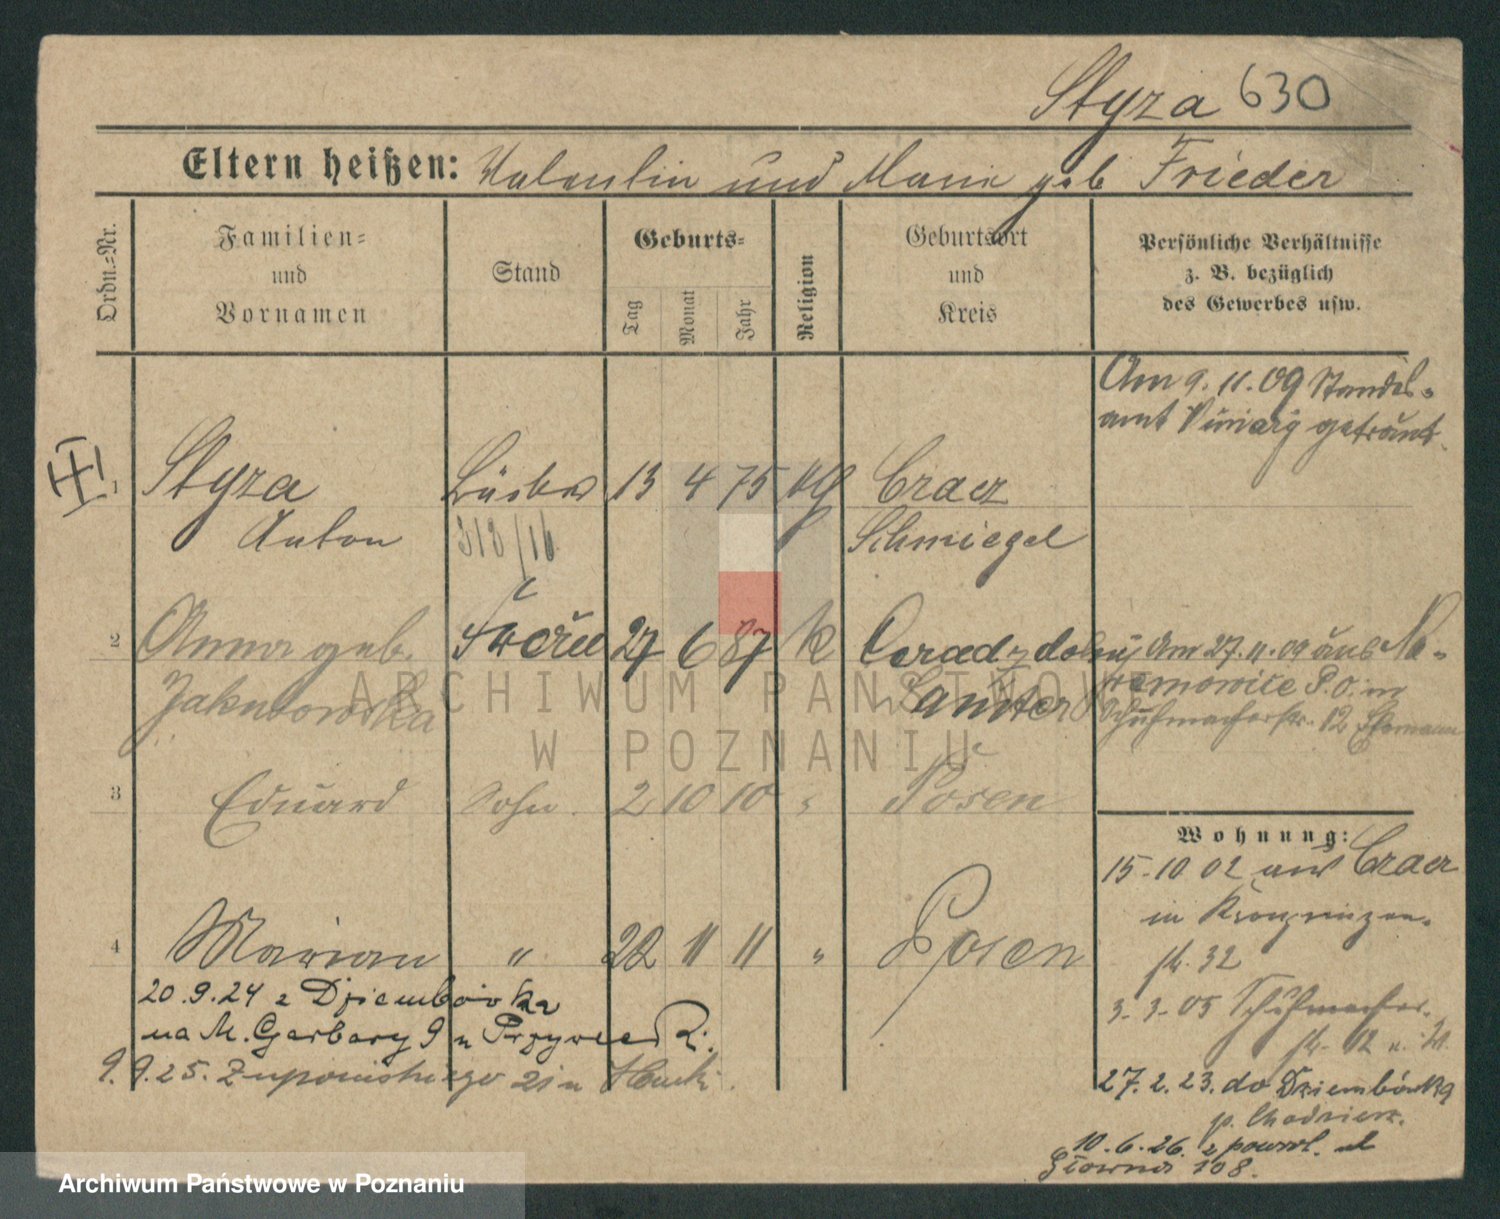 Styza 630
Eltern heißen: Valentin und Marie geb Frieder
Ordn.=Nr.
Familien=
und
Vornamen
Stand
Geburts=
Tag
Monat
Jahr
Religion
Geburtsort
und
Kreis
Persönliche Verhältnisse
z. B. bezüglich
des Gewerbes usw.
Am 9. 11. 09 Standes=
amt getraut.
1 Styza 13 4 75 Craez
Anton 318/16 Schmiegel
2 Anna geb. 27 6 87 k Am 27. 11. 09 aus
Jakubowska P. O. in
Schuhmacherstr. 12
3 Eduard Sohn. 2 10 10 " Posen
Wohnung:
15-10 02 aus Craez
in
str. 32
4 Marian " 22 11 11 " Posen
3-3-05 Schuhmacher-
str. 12
20.9.24 z Dziembówka
na M. Garbary 9 u
9.9.25.
27.2.23. do Dziembówka
p. Chodzież.
10.6.26. z powrot.
Główna 108.
ARCHIWUM PAŃSTWOWE
W POZNANIU
Archiwum Państwowe w Poznaniu